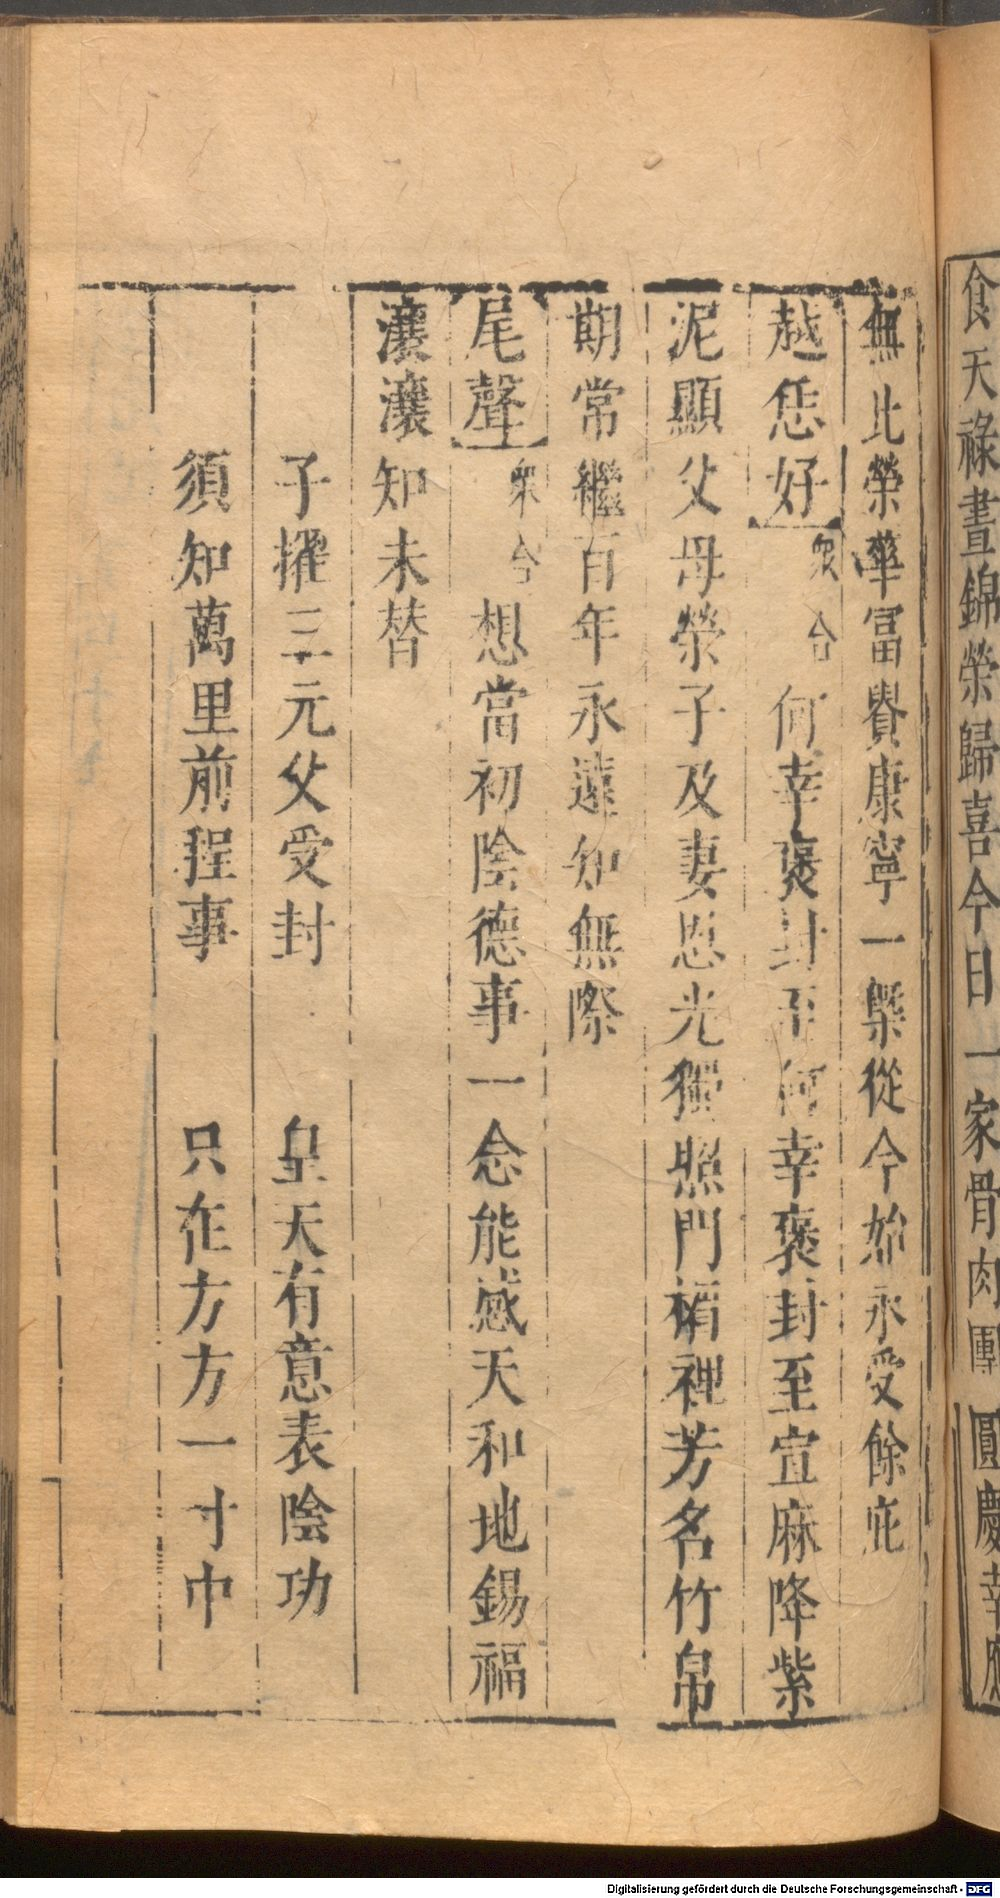 食天祿晝錦榮歸喜今日一家骨肉團圓慶幸
無比榮華冨貴康寧一槩從今始永受餘庇
越恁好衆合何幸褒封至何幸褒封至宣麻降紫
泥顯父母榮子及妻恩光獨照門楣裡芳名竹帛
期常繼百年永遠知無際
尾聲衆合想當初陰德事一念能感天和地錫福
瀼瀼知未替
子擢三元父受封 皇天有意表陰功
須知萬里前程事 只在方方一寸中
Digitalisierung gefördert durch die Deutsche Forschungsgemeinschaft - DFG